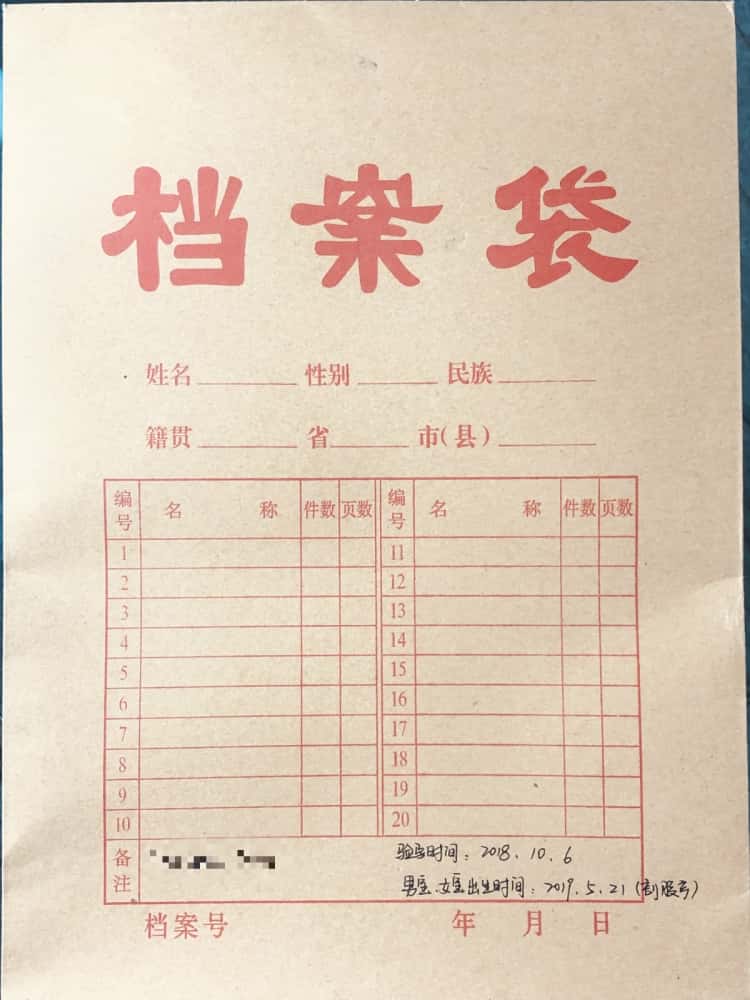 档案袋
姓名 性别 民族
籍贯 省 市(县)
编号 名 称 件数 页数 编号 名 称 件数 页数
1 11
2 12
3 13
4 14
5 15
6 16
7 17
8 18
9 19
10 20
备注 验孕时间：2018.10.6
男宝.女宝出生时间：2019.5.21(剖腹产)
档案号 年 月 日